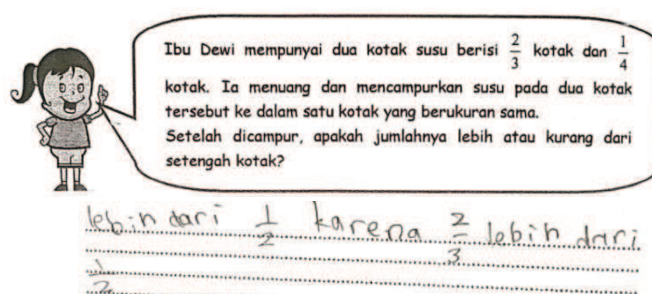 Ibu Dewi mempunyai dua kotak susu berisi 2/3 kotak dan 1/4
kotak. Ia menuang dan mencampurkan susu pada dua kotak
tersebut ke dalam satu kotak yang berukuran sama.
Setelah dicampur, apakah jumlahnya lebih atau kurang dari
setengah kotak?
lebih dari 1/2 karena 2/3 lebih dari
1/2